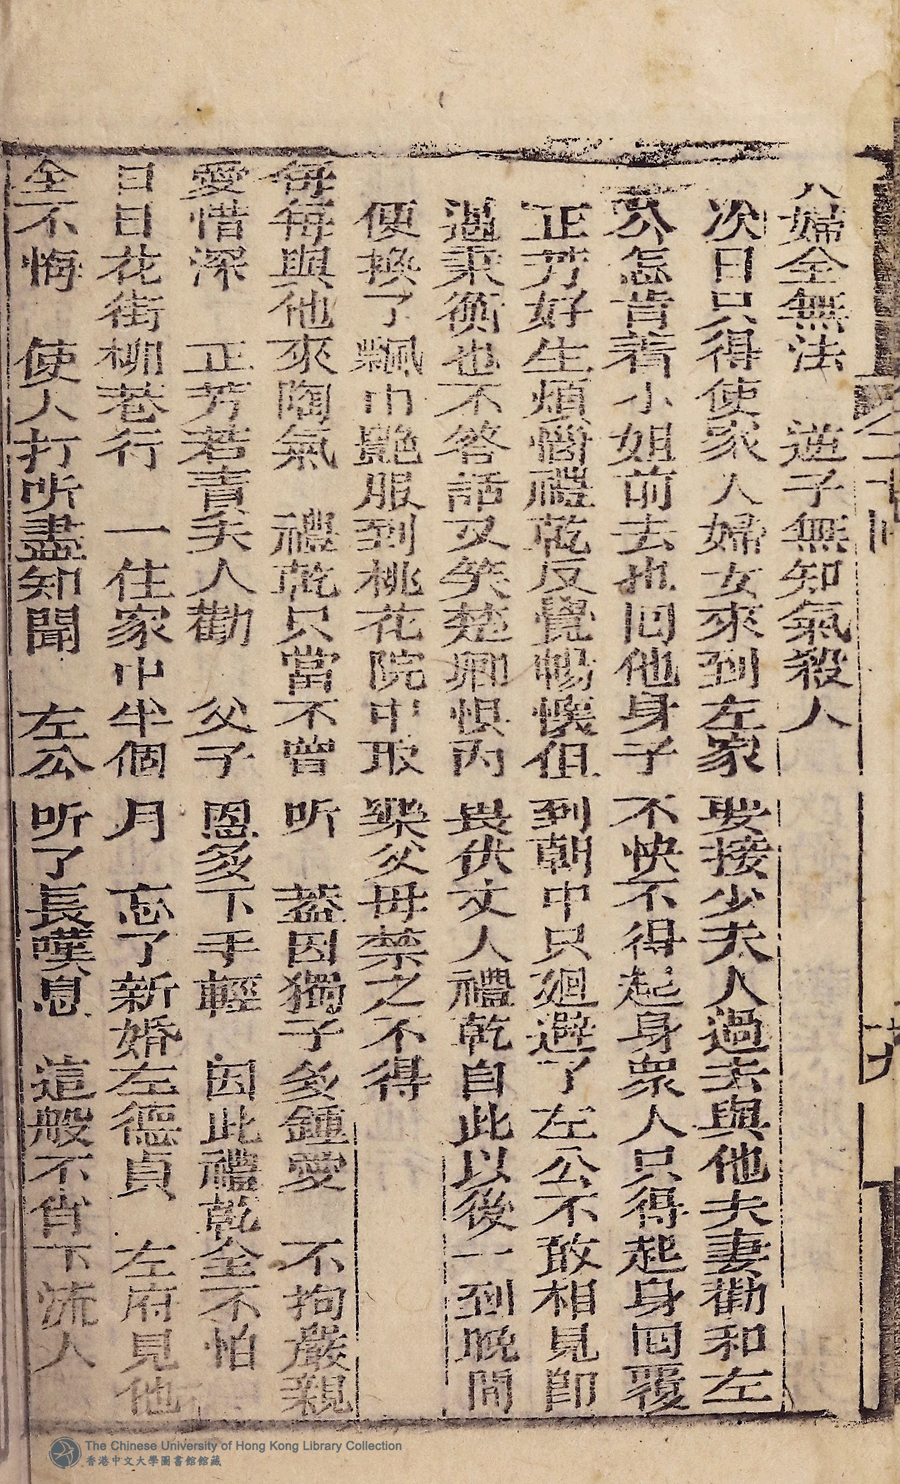 卷二十回
十九
人婦全無法　逆子無知氣殺人
次日只得使家人婦女來到左家娶接少夫人過去與他夫妻勸和左
公怎肯着小姐前去也回他身子不快不得起身衆人只得起身回覆
正芳好生煩惱禮乾反覺暢懷但到朝中只廻避了左公不敢相見即
過秉衡也不答話又笑楚卿惧內畏伏丈人禮乾自此以後一到晚間
便換了飄巾艷服到桃花院中取樂父母禁之不得
每每與他來陶氣　禮乾只當不曾听　蓋因獨子多鍾愛　不拘嚴親
愛惜深　正芳若責夫人勸　父子恩多下手輕　因此禮乾全不怕
日日花街柳巷行　一住家中半個月　忘了新婚左德貞　左府見他
全不悔　使人打听盡知聞　左公听了長嘆息　這般不肖下流人
The Chinese University of Hong Kong Library Collection
香港中文大學圖書館館藏